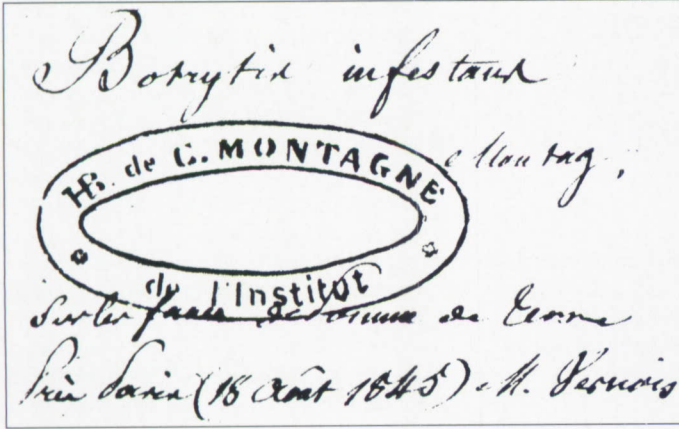 Botrytis infestans
Montag.
Hb. de C. MONTAGNE
de l'Institut
Sur les fanes de pomme de terre
Près Paris (18 Août 1845) M. Vernois